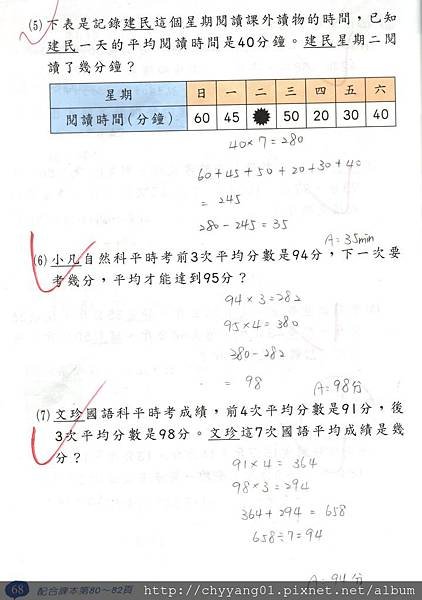 (5) 下表是記錄建民這個星期閱讀課外讀物的時間，已知
建民一天的平均閱讀時間是40分鐘。建民星期二閱
讀了幾分鐘？
星期 日 一 二 三 四 五 六
閱讀時間(分鐘) 60 45 50 20 30 40
40×7=280
60+45+50+20+30+40
=245
280-245=35
A=35min
(6) 小凡自然科平時考前3次平均分數是94分，下一次要
考幾分，平均才能達到95分？
94×3=282
95×4=380
380-282
=98
A=98分
(7) 文珍國語科平時考成績，前4次平均分數是91分，後
3次平均分數是98分。文珍這7次國語平均成績是幾
分？
91×4=364
98×3=294
364+294=658
658÷7=94
A=94分
68 配合課本第80～82頁
http://chyyang01.pixnet.net/album